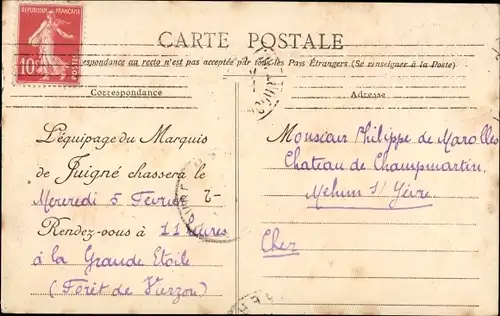 RÉPUBLIQUE FRANÇAISE
10c
POSTES
CARTE POSTALE
respondance au recto n'est pas acceptée par tous les Pays Étrangers (Se renseigner à la Poste)
Correspondance
L'équipage du Marquis
de Juigné chassera le
Mercredi 5 Fevrier
Rendez-vous à 11 heures
à la Grande Etoile
(Forêt de Vierzon)
Adresse
Monsieur Philippe de Marolles
Chateau de Champmartin,
Mehun s/ Yèvre
Cher